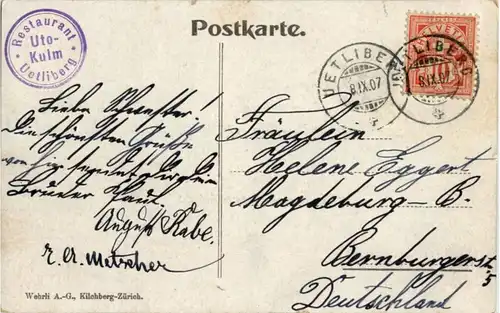 Restaurant
Uto-
Kulm
Uetliberg
Postkarte.
HELVETIA
UETLIBERG
8.IX.07
UETLIBERG
8.IX.07
Liebe Schwester!
Die schönsten Grüße
von hier
Bruder
August Rabe.
Fräulein
Helene Eggert
Magdeburg-B.
Bernburgerstr
5
Deutschland
Wehrli A.-G., Kilchberg-Zürich.